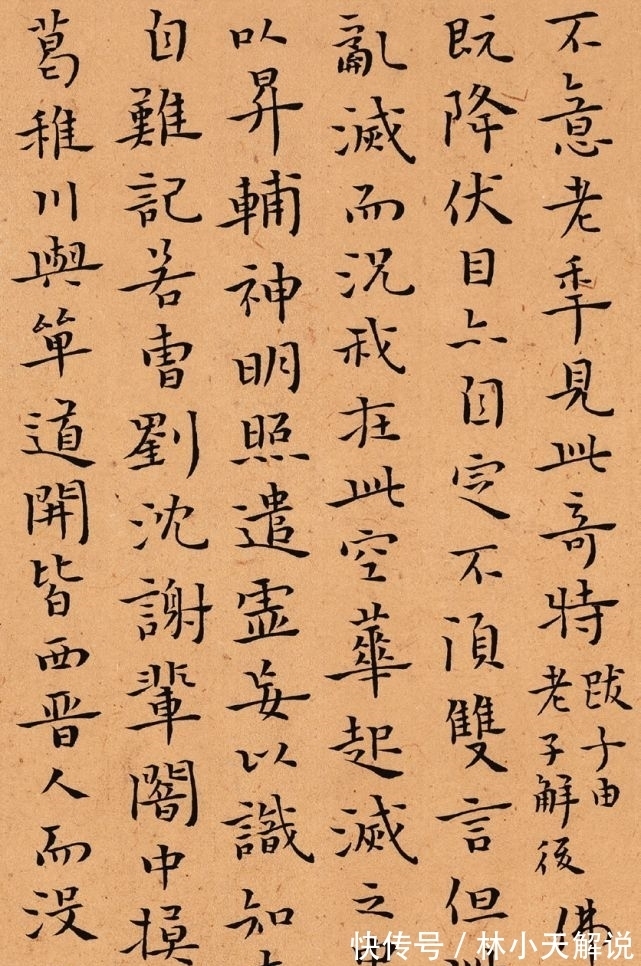 不意老秊見此奇特
跋子由
老子解後
佛
既降伏目亦自定不須雙言但
亂滅而況我在此空華起滅之
以昇輔神明照遣虛妄以識知
自難記若曹劉沈謝輩闇中摸
葛稚川與單道開皆西晉人而没
快传号 / 林小天解说